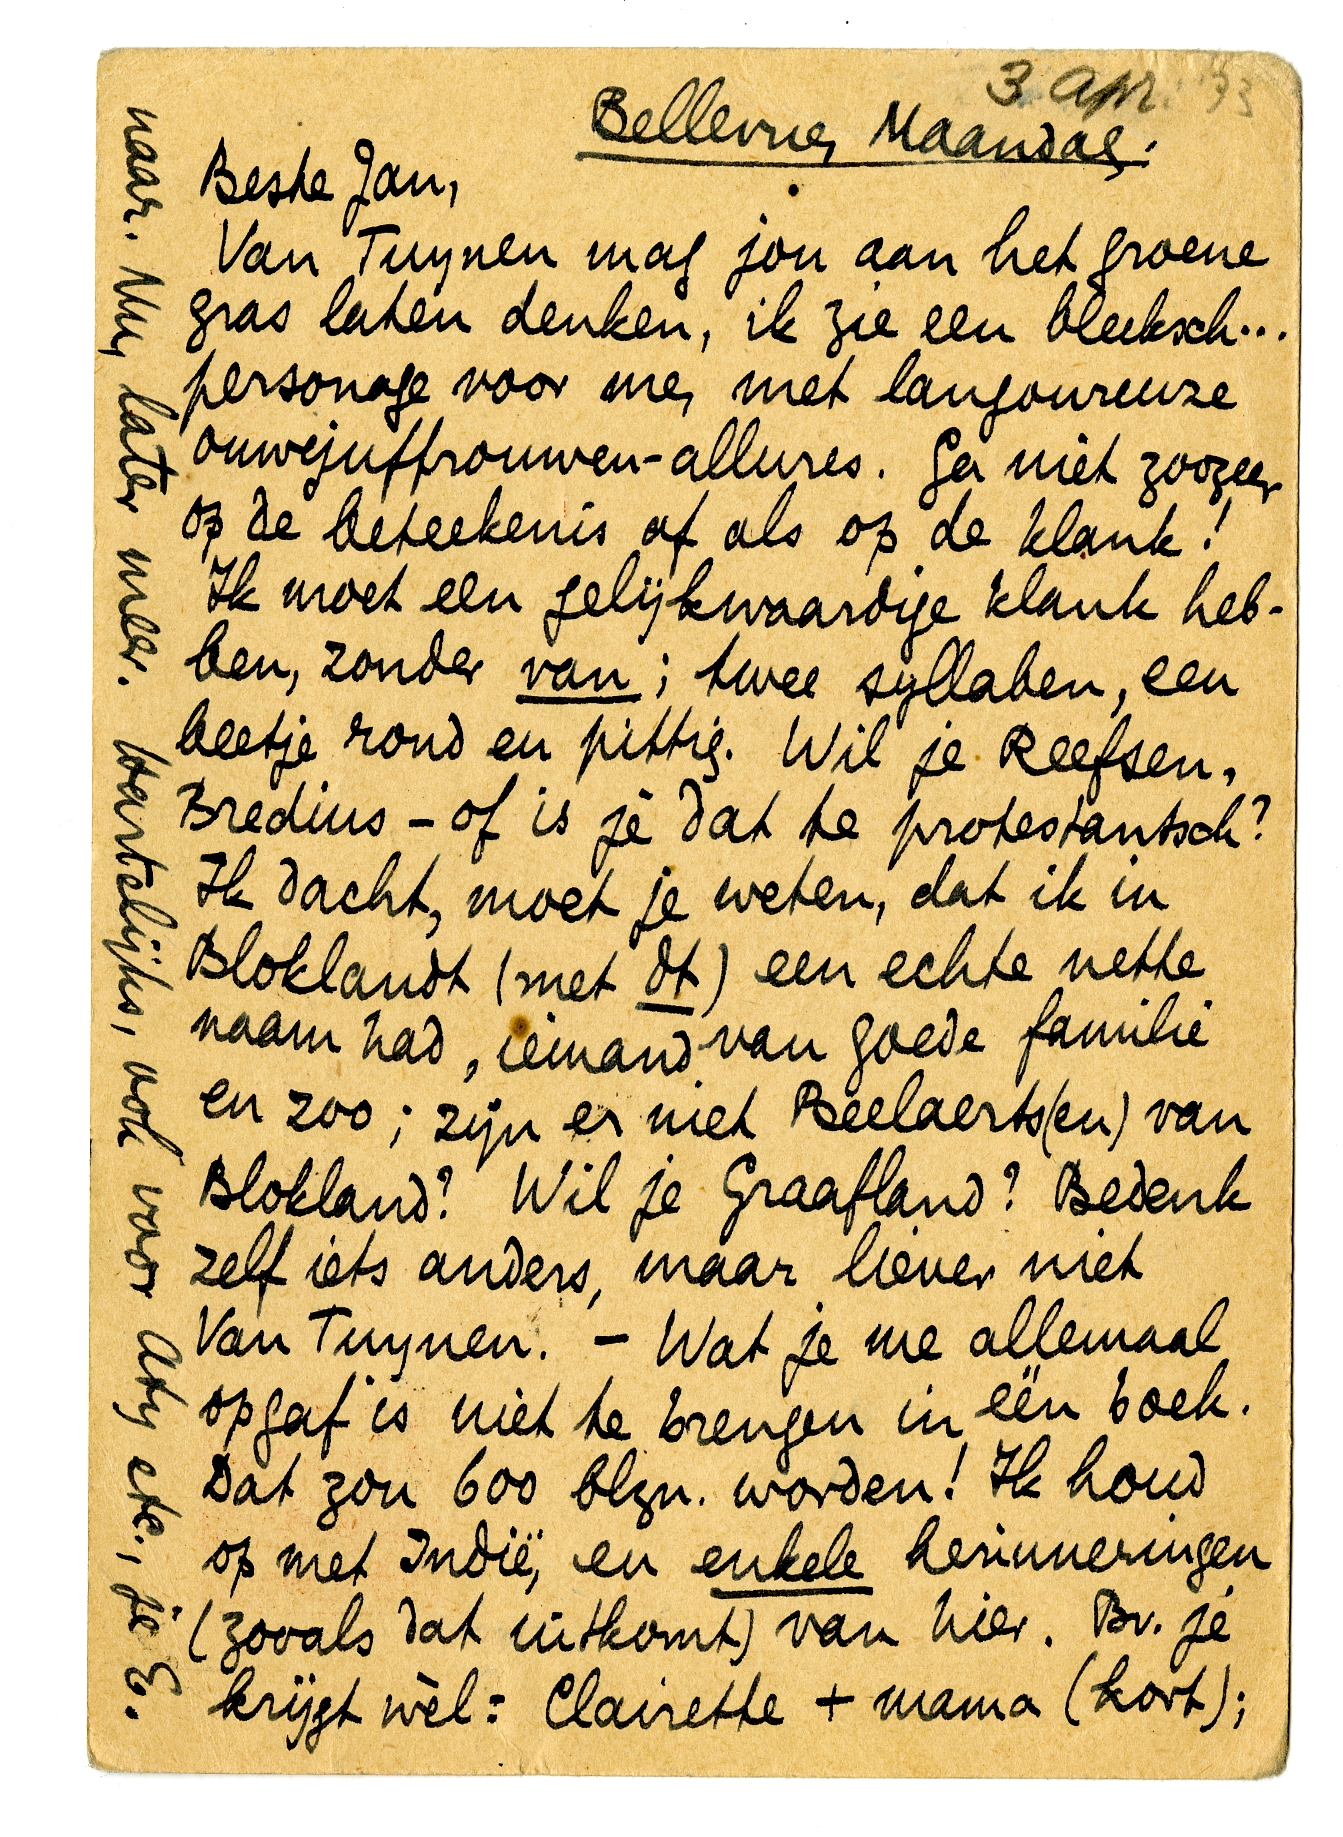 3 Apr. '33
Bellevue, Maandag.
Beste Jan,
Van Tuynen mag jou aan het groene
gras laten denken, ik zie een bleeksch...
personage voor me, met langoureuze
ouwejuffrouwen-allures. Ga niet zoozeer
op de beteekenis af als op de klank!
Ik moet een gelijkwaardige klank heb-
ben, zonder van; twee syllaben, een
beetje rond en pittig. Wil je Reefsen,
Bredius – of is je dat te protestantsch?
Ik dacht, moet je weten, dat ik in
Bloklandt (met dt) een echte nette
naam had, iemand van goede familie
en zoo; zijn er niet Beelaerts(en) van
Blokland? Wil je Graafland? Bedenk
zelf iets anders, maar liever niet
Van Tuynen. – Wat je me allemaal
opgaf is niet te brengen in één boek.
Dat zou 600 blzn. worden! Ik houd
op met Indië, en enkele herinneringen
(zooals dat uitkomt) van hier. Bv. je
krijgt wèl: Clairette + mama (kort);
naar. Nu, later meer. Hartelijks, ook voor Aty etc., je E.